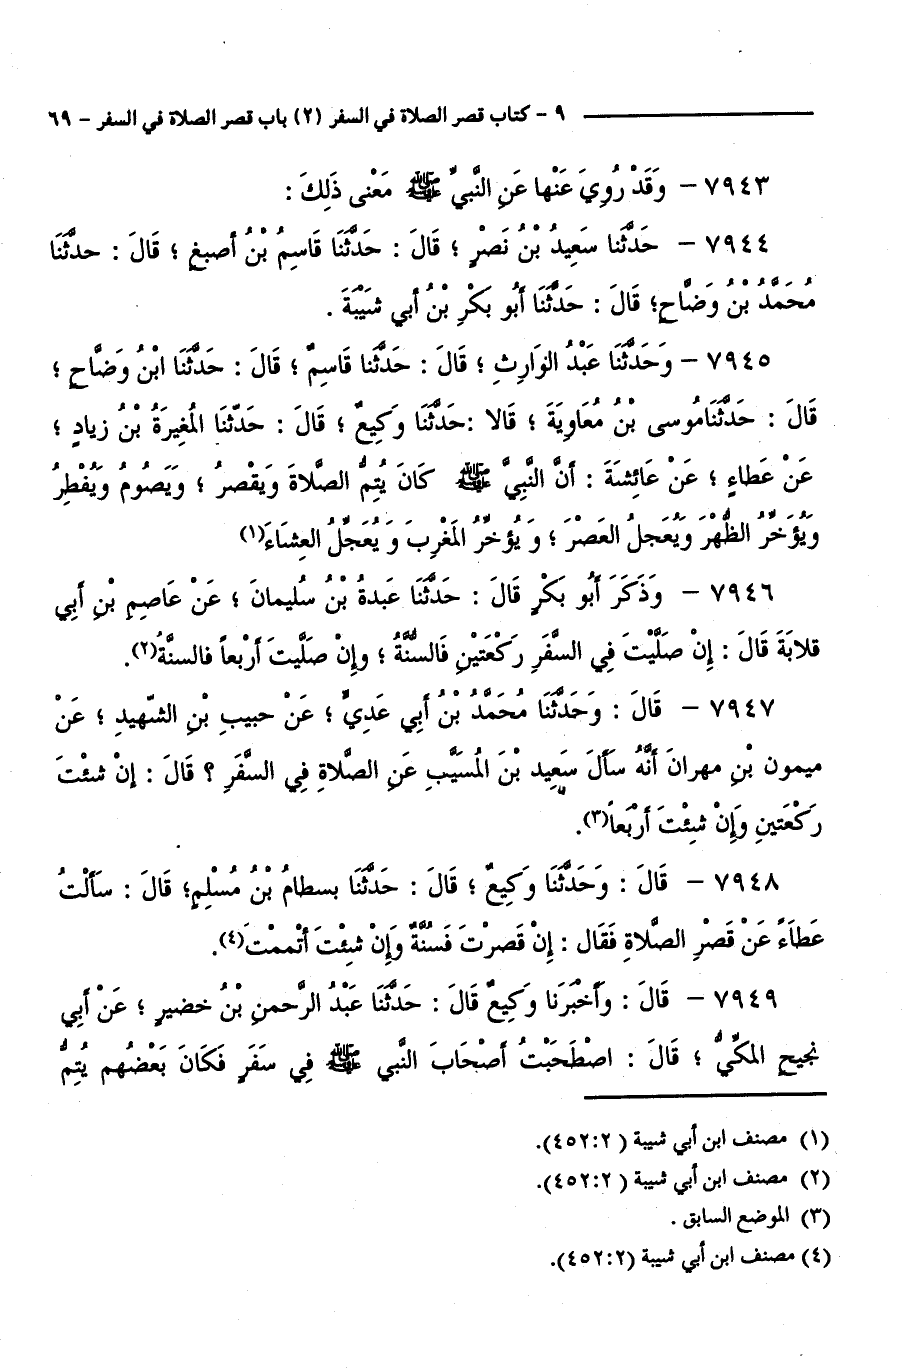 ٩ - كتاب قصر الصلاة في السفر (٢) باب قصر الصلاة في السفر - ٦٩
٧٩٤٣ - وَقَدْ رُوِيَ عَنْها عَنِ النَّبيِّ ﷺ مَعْنى ذَلِكَ :
٧٩٤٤ - حَدَّثَنا سَعِيدُ بْنُ نَصْرٍ ؛ قَالَ : حَدَّثَنَا قَاسِمُ بْنُ أصبغ ؛ قَالَ : حدثَّنَا
مُحَمَّدُ بْنُ وَضَّاحٍ؛ قَالَ : حَدَّثَنَا أَبُو بَكْرِ بْنُ أبي شَيْبَةَ .
٧٩٤٥ - وَحَدَّثَنَا عَبْدُ الوَارِثِ ؛ قَالَ : حَدَّثَنا قَاسِمٌ ؛ قَالَ : حَدَّثَنَا ابْنُ وَضَّاحٍ ؛
قَالَ : حَدَّثَنَامُوسى بْنُ مُعَاوِيَةَ ؛ قَالا :حَدَّثَنَا وَكِيعٌ ؛ قَالَ : حَدّثَنَا المُغِيرَةُ بْنُ زيادٍ ؛
عَنْ عَطاءٍ ؛ عَنْ عَائِشَةَ : أنَّ النَّبِيَّ ﷺ كَانَ يُتِمُّ الصَّلاةَ وَيَقْصرُ ؛ وَيَصُومُ وَيُفْطِرُ
وَيُؤَخَّرُ الظُّهْرَ وَيُعَجلُ العَصْرَ ؛ وَ يُؤخِّرُ المَغْرِبَ وَ يُعَجِّلُ العِشَاءَ(١)
٧٩٤٦ - وَذَكَرَ أَبُو بَكْرٍ قَالَ : حَدَّثَنَا عَبدةُ بْنُ سُليمانَ ؛ عَنْ عَاصِمٍ بْنِ أَبِي
قلابَةَ قَالَ : إِنْ صَلَّيْتَ فِي السَّفَرِ رَكْعَتَيْنِ فَالسُّنَّةُ ؛ وإِنْ صَلَّيتَ أَرْبعاً فالسنَّةُ(٢).
٧٩٤٧ - قَالَ : وَحَدَّثَنَا مُحَمَّدُ بْنُ أَبِي عَدِيٍّ ؛ عَنْ حبيبِ بْنِ الشّهيدِ ؛ عَنْ
ميمون بْنِ مهرانَ أَنَّهُ سَأَلَ سَعِيد بْنَ المُسَيَّبِ عَنِ الصَّلاةِ فِي السفَرِ ؟ قَالَ : إنْ شئْتَ
رَكْعَتَينِ وَإِنْ شِئْتَ أَرْبَعاً(٣).
٧٩٤٨ - قَالَ : وَحَدَّثَنَا وَكِيعٌ ؛ قَالَ : حَدَّثَنَا بسطامُ بْنُ مُسْلِمٍ؛ قَالَ : سَأَلْتُ
عَطَاءً عَنْ قَصْرِ الصَّلاةِ فَقَال : إِنْ قَصرْتَ فَسُنَّةٌ وَإِنْ شِئْتَ أَتْممْتَ(٤).
٧٩٤٩ - قَالَ : وَأَخْبَرَنا وَكِيعٌ قَالَ : حَدَّثَنَا عَبْدُ الرَّحمنِ بْنُ خضيرٍ ؛ عَنْ أَبِي
نجيح المَكِّيُّ ؛ قَالَ : اصْطَحَبْتُ أَصْحَابَ النَّبي ﷺ فِي سَفَرٍ فَكَانَ بَعْضُهم يُتِمُّ
(١) مصنف ابن أبي شيبة ( ٤٥٢:٢).
(٢) مصنف ابن أبي شيبة ( ٤٥٢:٢).
(٣) الموضع السابق .
(٤) مصنف ابن أبي شيبة (٤٥٢:٢).